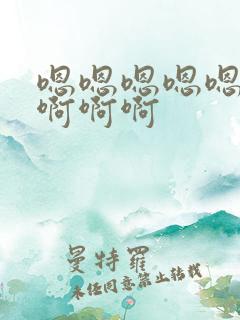 嗯嗯嗯嗯嗯
啊啊啊
曼特罗
未经同意禁止转载